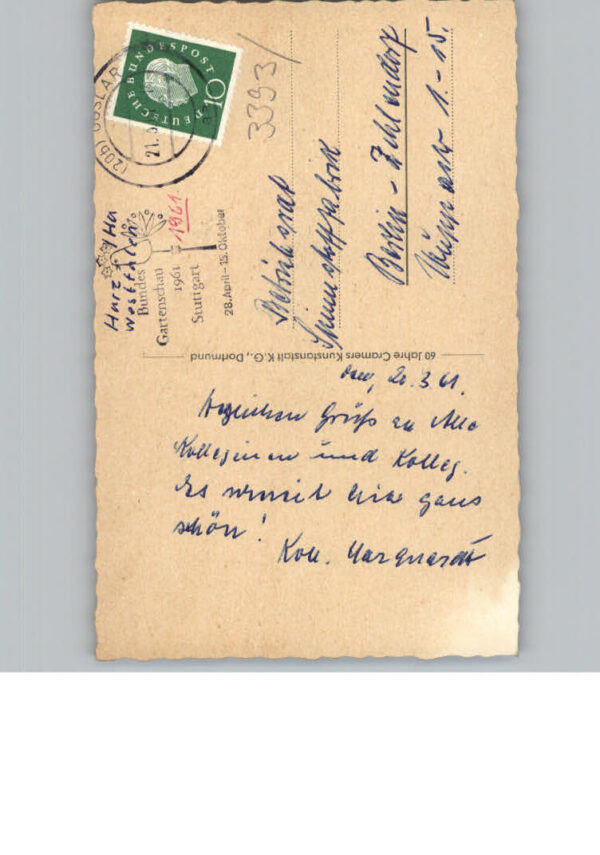 den, 20.3.61.
Grüße an Alle
Kolleginnen und Kolleg.
Es hier ganz
schön!
Koll. Marquardt
60 Jahre Cramers Kunstanstalt K.G., Dortmund
Betriebsrat
Spinnstofffabrik
Berlin - Zehlendorf
1. - 15.
DEUTSCHE BUNDESPOST
10
(20b) GOSLAR
21.
3393/
Harz
Westfalen
1961
Bundes
Gartenschau
1961
Stuttgart
28.April - 15.Oktober